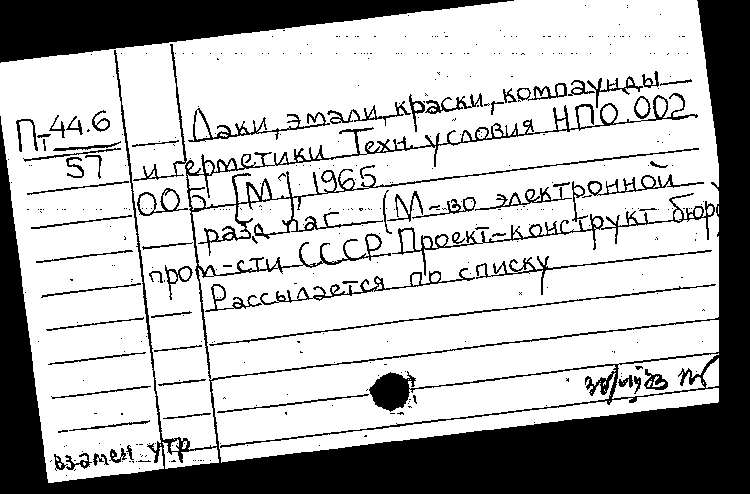 Пт 44.6
57
Лаки, эмали, краски, компаунды
и герметики Техн. условия НПО.002
005. [М], 1965
разд паг. (М-во электронной
пром-сти СССР. Проект-конструкт бюро)
Рассылается по списку
взамен утр